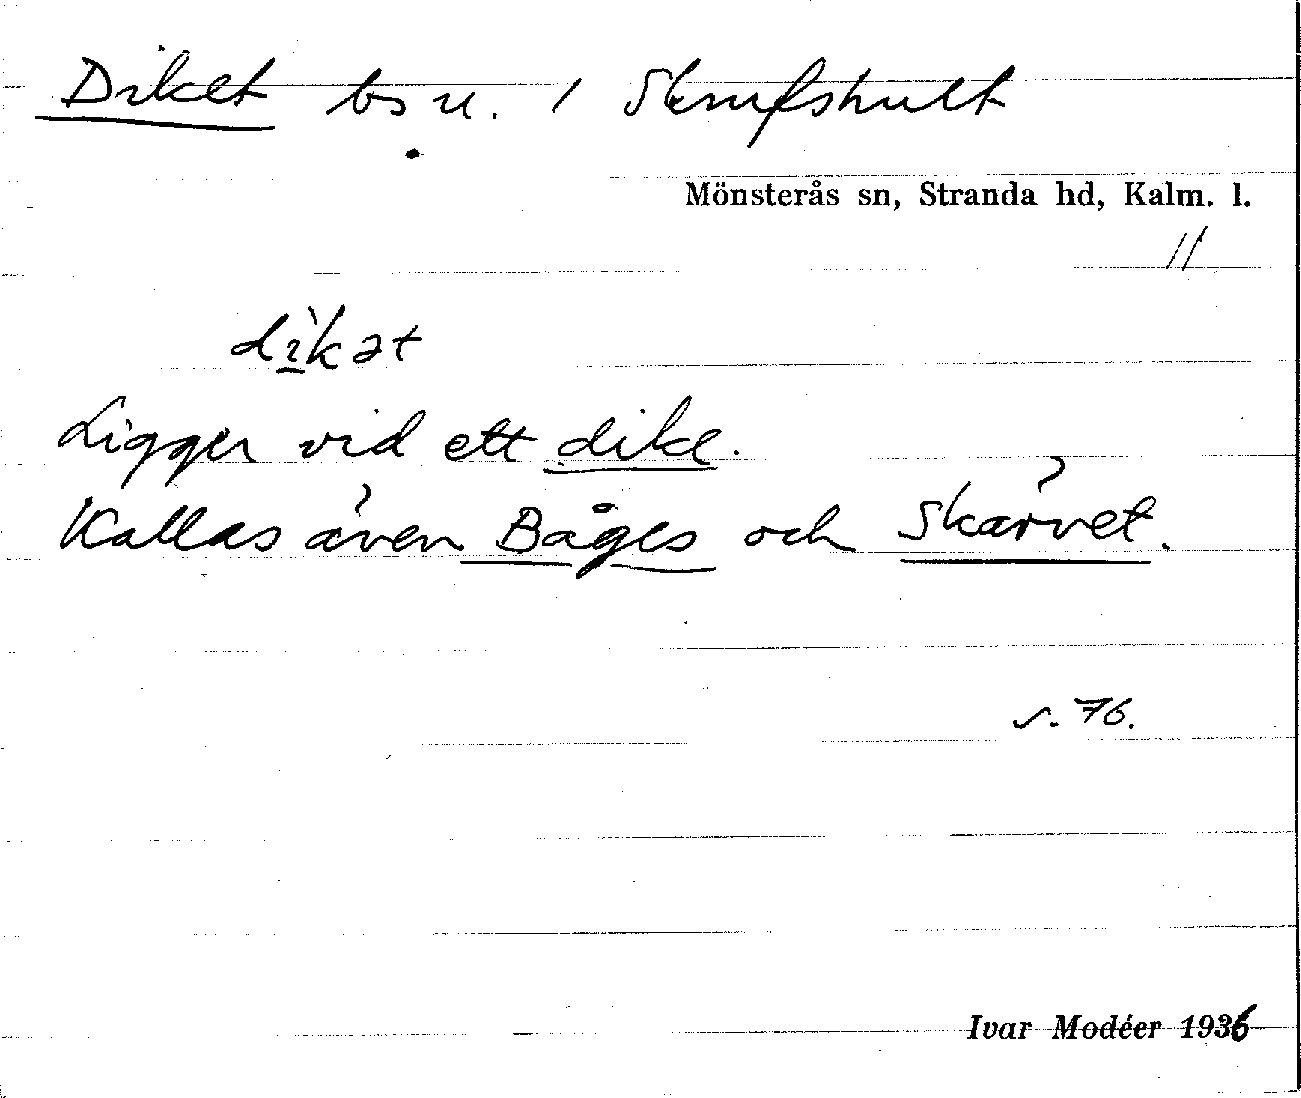 Diket bs u. 1 Skrufshult
Mönsterås sn, Stranda hd, Kalm. l.
11
dìkət
Ligger vid ett dike.
Kallas även Båges och Skärvet.
s. 76.
Ivar Modéer 1936